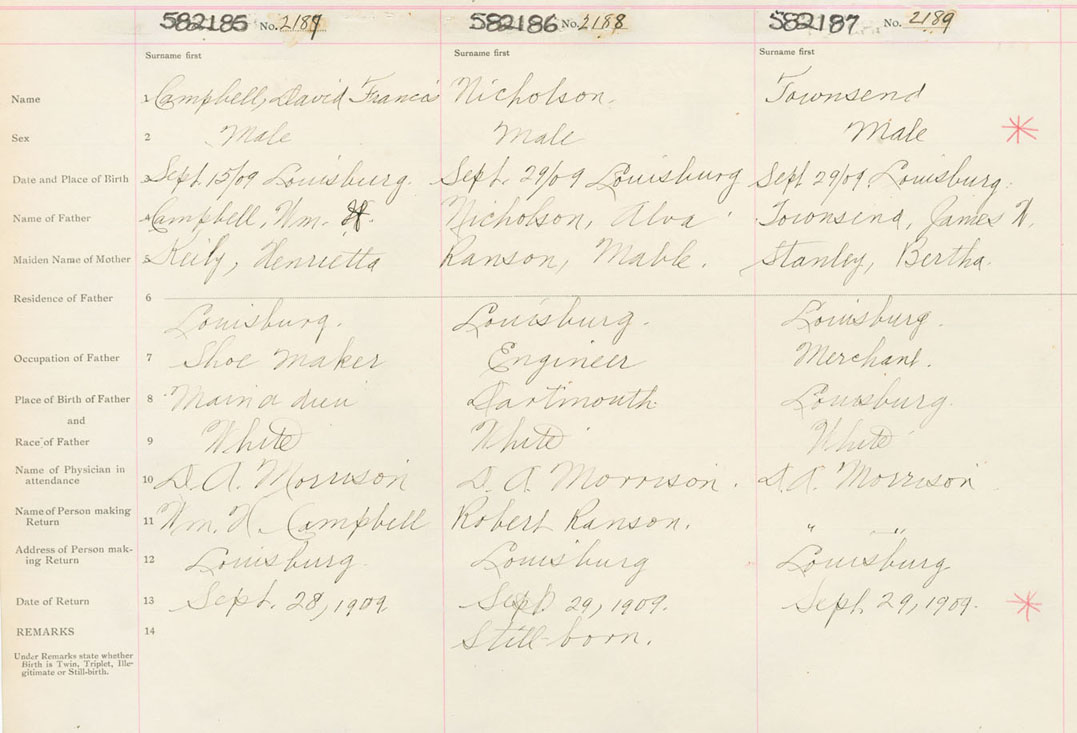 582185 No. 2187 582186 No. 2188 582187 No. 2189
Surname first Surname first Surname first
Name 1 Campbell, David Francis Nicholson. Townsend
Sex 2 Male Male Male
Date and Place of Birth 3 Sept. 15/09 Louisburg. Sept. 29/09 Louisburg Sept 29/09. Louisburg.
Name of Father 4 Campbell, Wm. H. Nicholson, Alva Townsend, James W.
Maiden Name of Mother 5 Keily, Henrietta Ranson, Mable. Stanley, Bertha.
Residence of Father 6
Louisburg. Louisburg. Louisburg.
Occupation of Father 7 Shoe maker Engineer Merchant.
Place of Birth of Father 8 Main a dieu Dartmouth Louisburg.
and
Race of Father 9 White White White
Name of Physician in
attendance 10 D. A. Morrison D. A. Morrison. D. A. Morrison
Name of Person making
Return 11 Wm. H. Campbell Robert Ranson. " "
Address of Person mak-
ing Return 12 Louisburg. Louisburg Louisburg
Date of Return 13 Sept. 28, 1909 Sept. 29, 1909. Sept. 29, 1909.
REMARKS 14 Still-born.
Under Remarks state whether
Birth is Twin, Triplet, Ille-
gitimate or Still-birth.